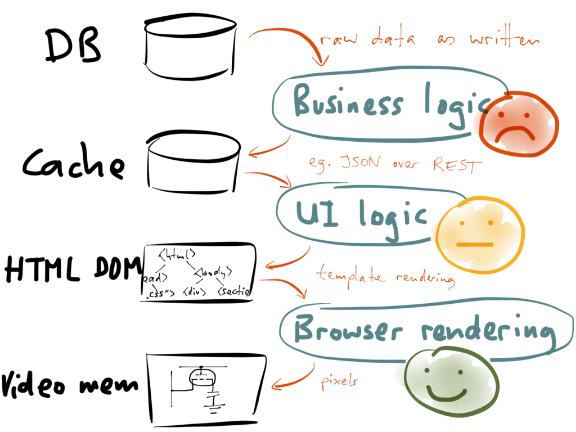 DB
raw data as written
Business logic
Cache
e.g. JSON over REST
UI logic
HTML DOM
<html>
ead>
<body>
.css">
<div>
<sectio
template rendering
Browser rendering
Video mem
pixels